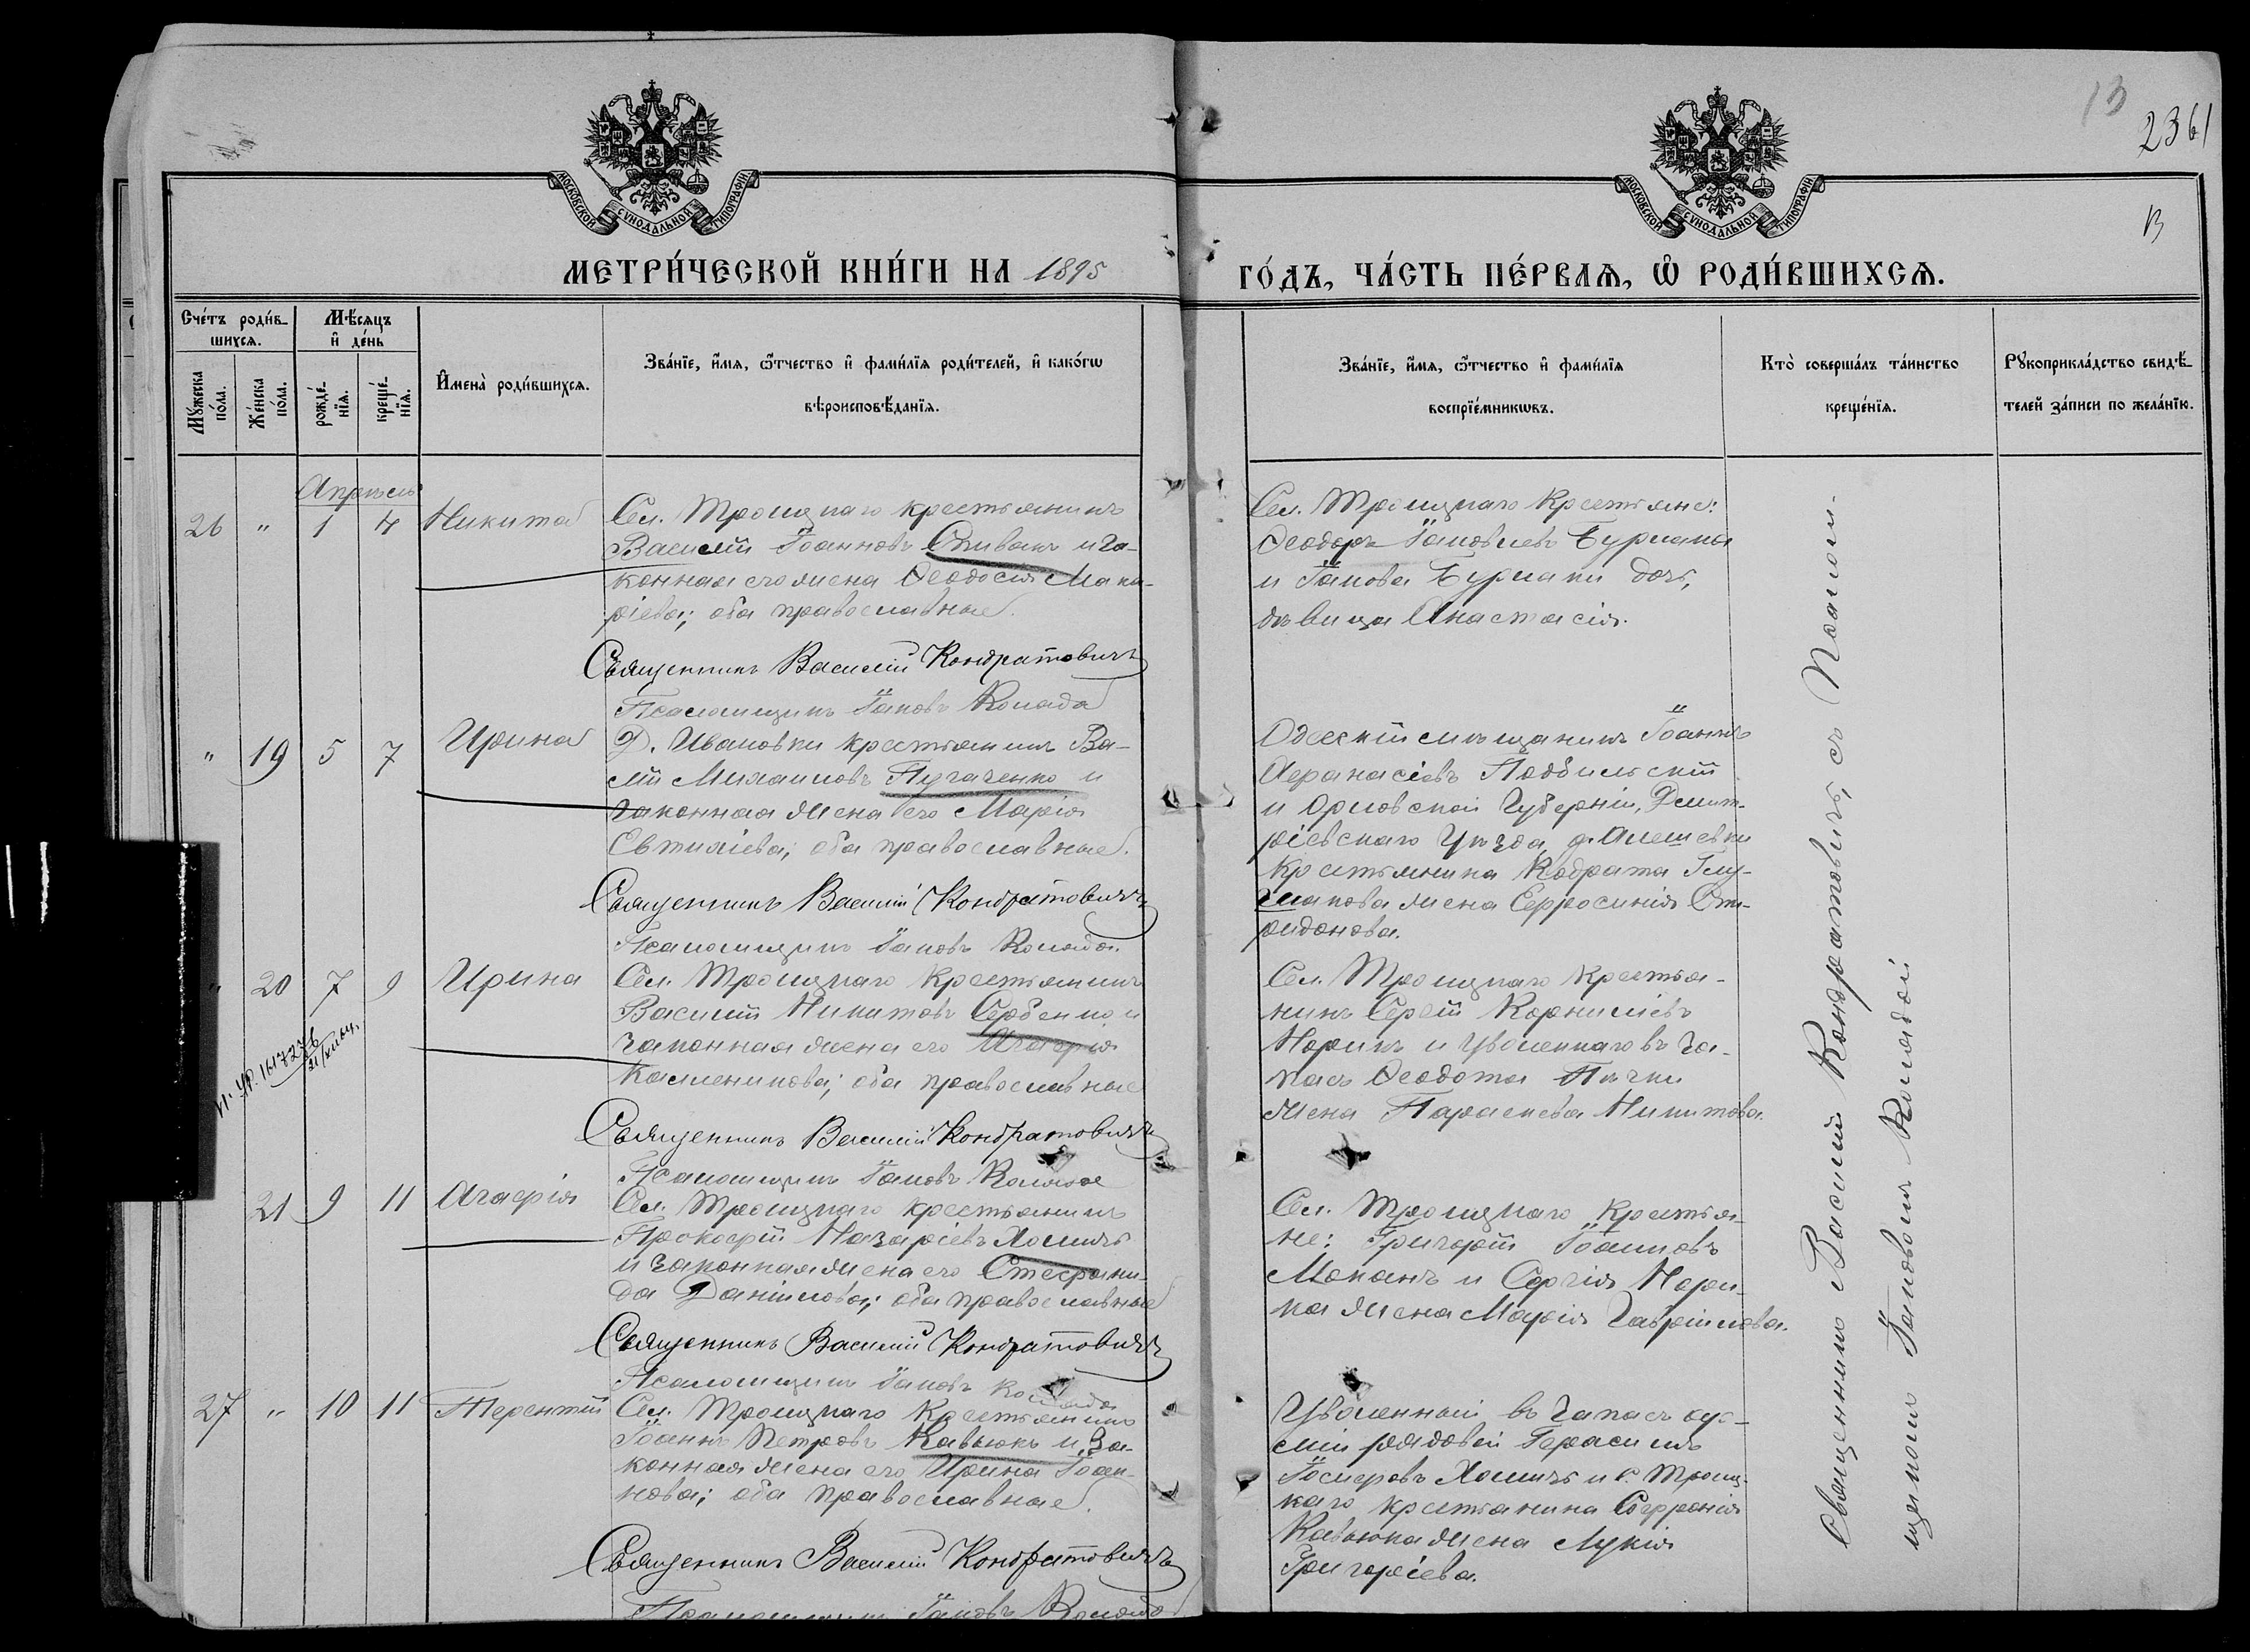 13
2361
13
МОСКОВСКОЙ СѴНОДАЛЬНОЙ ТИПОГРАФІИ
МОСКОВСКОЙ СѴНОДАЛЬНОЙ ТИПОГРАФІИ
МЕТРИ́ЧЕСКОЙ КНИ́ГИ НА 1895
ГО́ДЪ, ЧА́СТЬ ПЕ́РВАѦ, Ѽ РОДИ́ВШИХСѦ.
Сче́тъ роди́в-
шихсѧ.
Мѣ́сяцъ
и҆ де́нь
Мꙋ́жеска
по́ла.
Же́нска
по́ла.
рожде́-
нїѧ.
креще́-
нїѧ.
И҆мена̀ роди́вшихсѧ.
Зва́нїе, и҆́мѧ, ѻ҆́тчество и҆ фамѝлїѧ роди́телей, и҆ како́гѡ
вѣроисповѣ́данїѧ.
Зва́нїе, и҆́мѧ, ѻ҆́тчество и҆ фамѝлїѧ
воспрїе́мникѡвъ.
Кто̀ соверша́лъ та́инство
креще́нїѧ.
Рꙋкоприкла́дство свидѣ́-
телей за́писи по жела́нїю.
Апрѣль
26 " 1 4 Никита
Сел. Троицкаго крестьянинъ
Василій Іоанновъ Спивакъ и за-
конная его жена Ѳеодосія Мака-
ріева; оба православные.
Священникъ Василій Кондратовичъ
Псаломщикъ Іаковъ Коляда
Сел. Троицкаго крестьяне:
Ѳеодоръ Іаковлевъ Бурлака
и Іакова Бурлаки дочь,
дѣвица Анастасія.
" 19 5 7 Ирина
Д. Ивановки крестьянинъ Ва-
лій Михаиловъ Пугаченко и
законная жена его Марія
Евтихіева; оба православные.
Священникъ Василій Кондратовичъ
Псаломщикъ Іаковъ Коляда.
Одесскій мѣщанинъ Іоаннъ
Аѳанасіевъ Подбильскій
и Орловской Губерніи, Дмит-
ріевскаго Уѣзда, д. Алешевки
крестьянина Кодрата Глу-
шакова жена Евфросинія Спи-
ридонова.
" 20 7 9 Ирина
Сел. Троицкаго крестьянинъ
Василій Никитовъ Сербенко и
законная жена его Агафія
Каленикова; оба православные
Священникъ Василій Кондратовичъ
Псаломщикъ Іаковъ Коляда
Сел. Троицкаго крестья-
нинъ Сергій Корниліевъ
Норикъ и уволеннаго въ за-
пасъ Ѳеодота Пѣчки
жена Параскева Никитова.
21 9 11 Агафія
Сел. Троицкаго крестьянинъ
Прокофій Назаріевъ Хомичъ
и законная жена его Стефани-
да Даніилова; оба православные
Священникъ Василій Кондратовичъ
Псаломщикъ Іаковъ Коляда
Сел. Троицкаго крестья-
не: Григорій Іоанновъ
Моканъ и Сергія Нори-
ка жена Марія Гавріилова.
27 " 10 11 Терентій
Сел. Троицкаго крестьянинъ
Іоаннъ Петровъ Кавьюкъ и за-
конная жена его Ирина Іоан-
нова; оба православные.
Священникъ Василій Кондратовичъ
Псаломщикъ Іаковъ Коляда
Уволенный въ запасъ ар-
міи рядовой Герасимъ
Іосифовъ Хомичъ и с. Троиц-
каго крестьянина Софронія
Кавьюка жена Лукія
Григоріева.
Священникъ Василій Кондратовичъ, съ Псалом-
щикомъ Іаковомъ Колядой